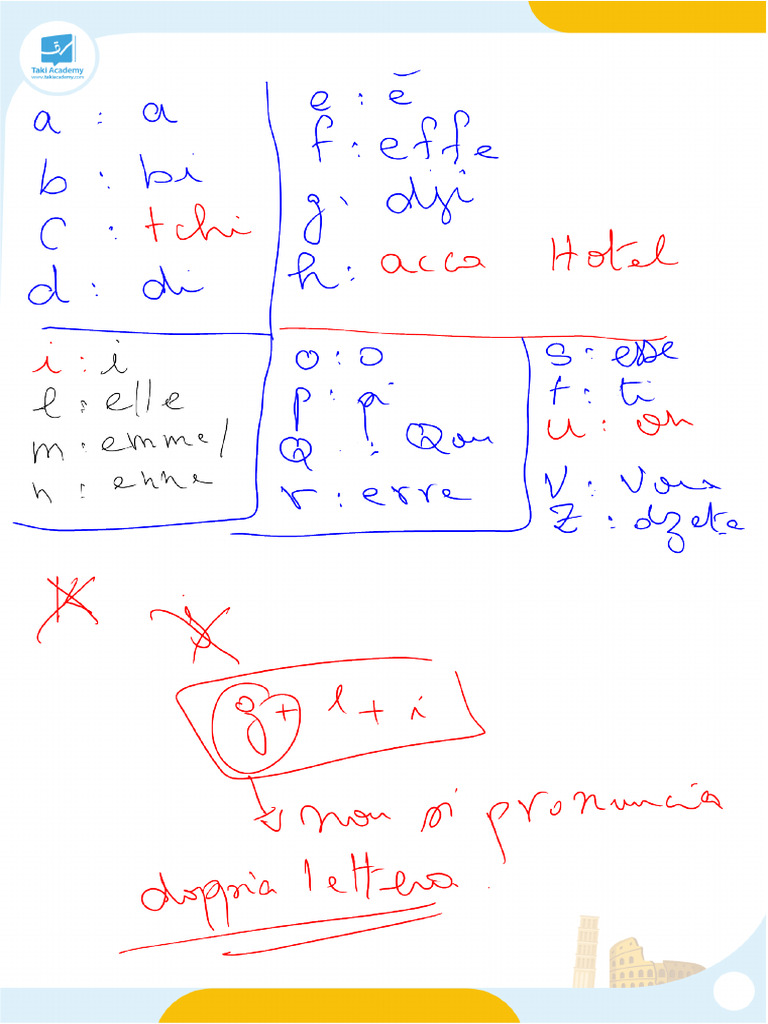 Taki Academy
www.takiacademy.com
a : a
b : bi
c : tchi
d : di
e : ē
f : effe
g : dji
h : acca Hotel
i : i
l : elle
m : emme
n : enne
o : o
p : pi
Q : Qou
r : erre
s : esse
t : ti
u : ou
V : Vou
Z : dzeta
K
j
g + l + i
non si pronuncia
doppia lettera.